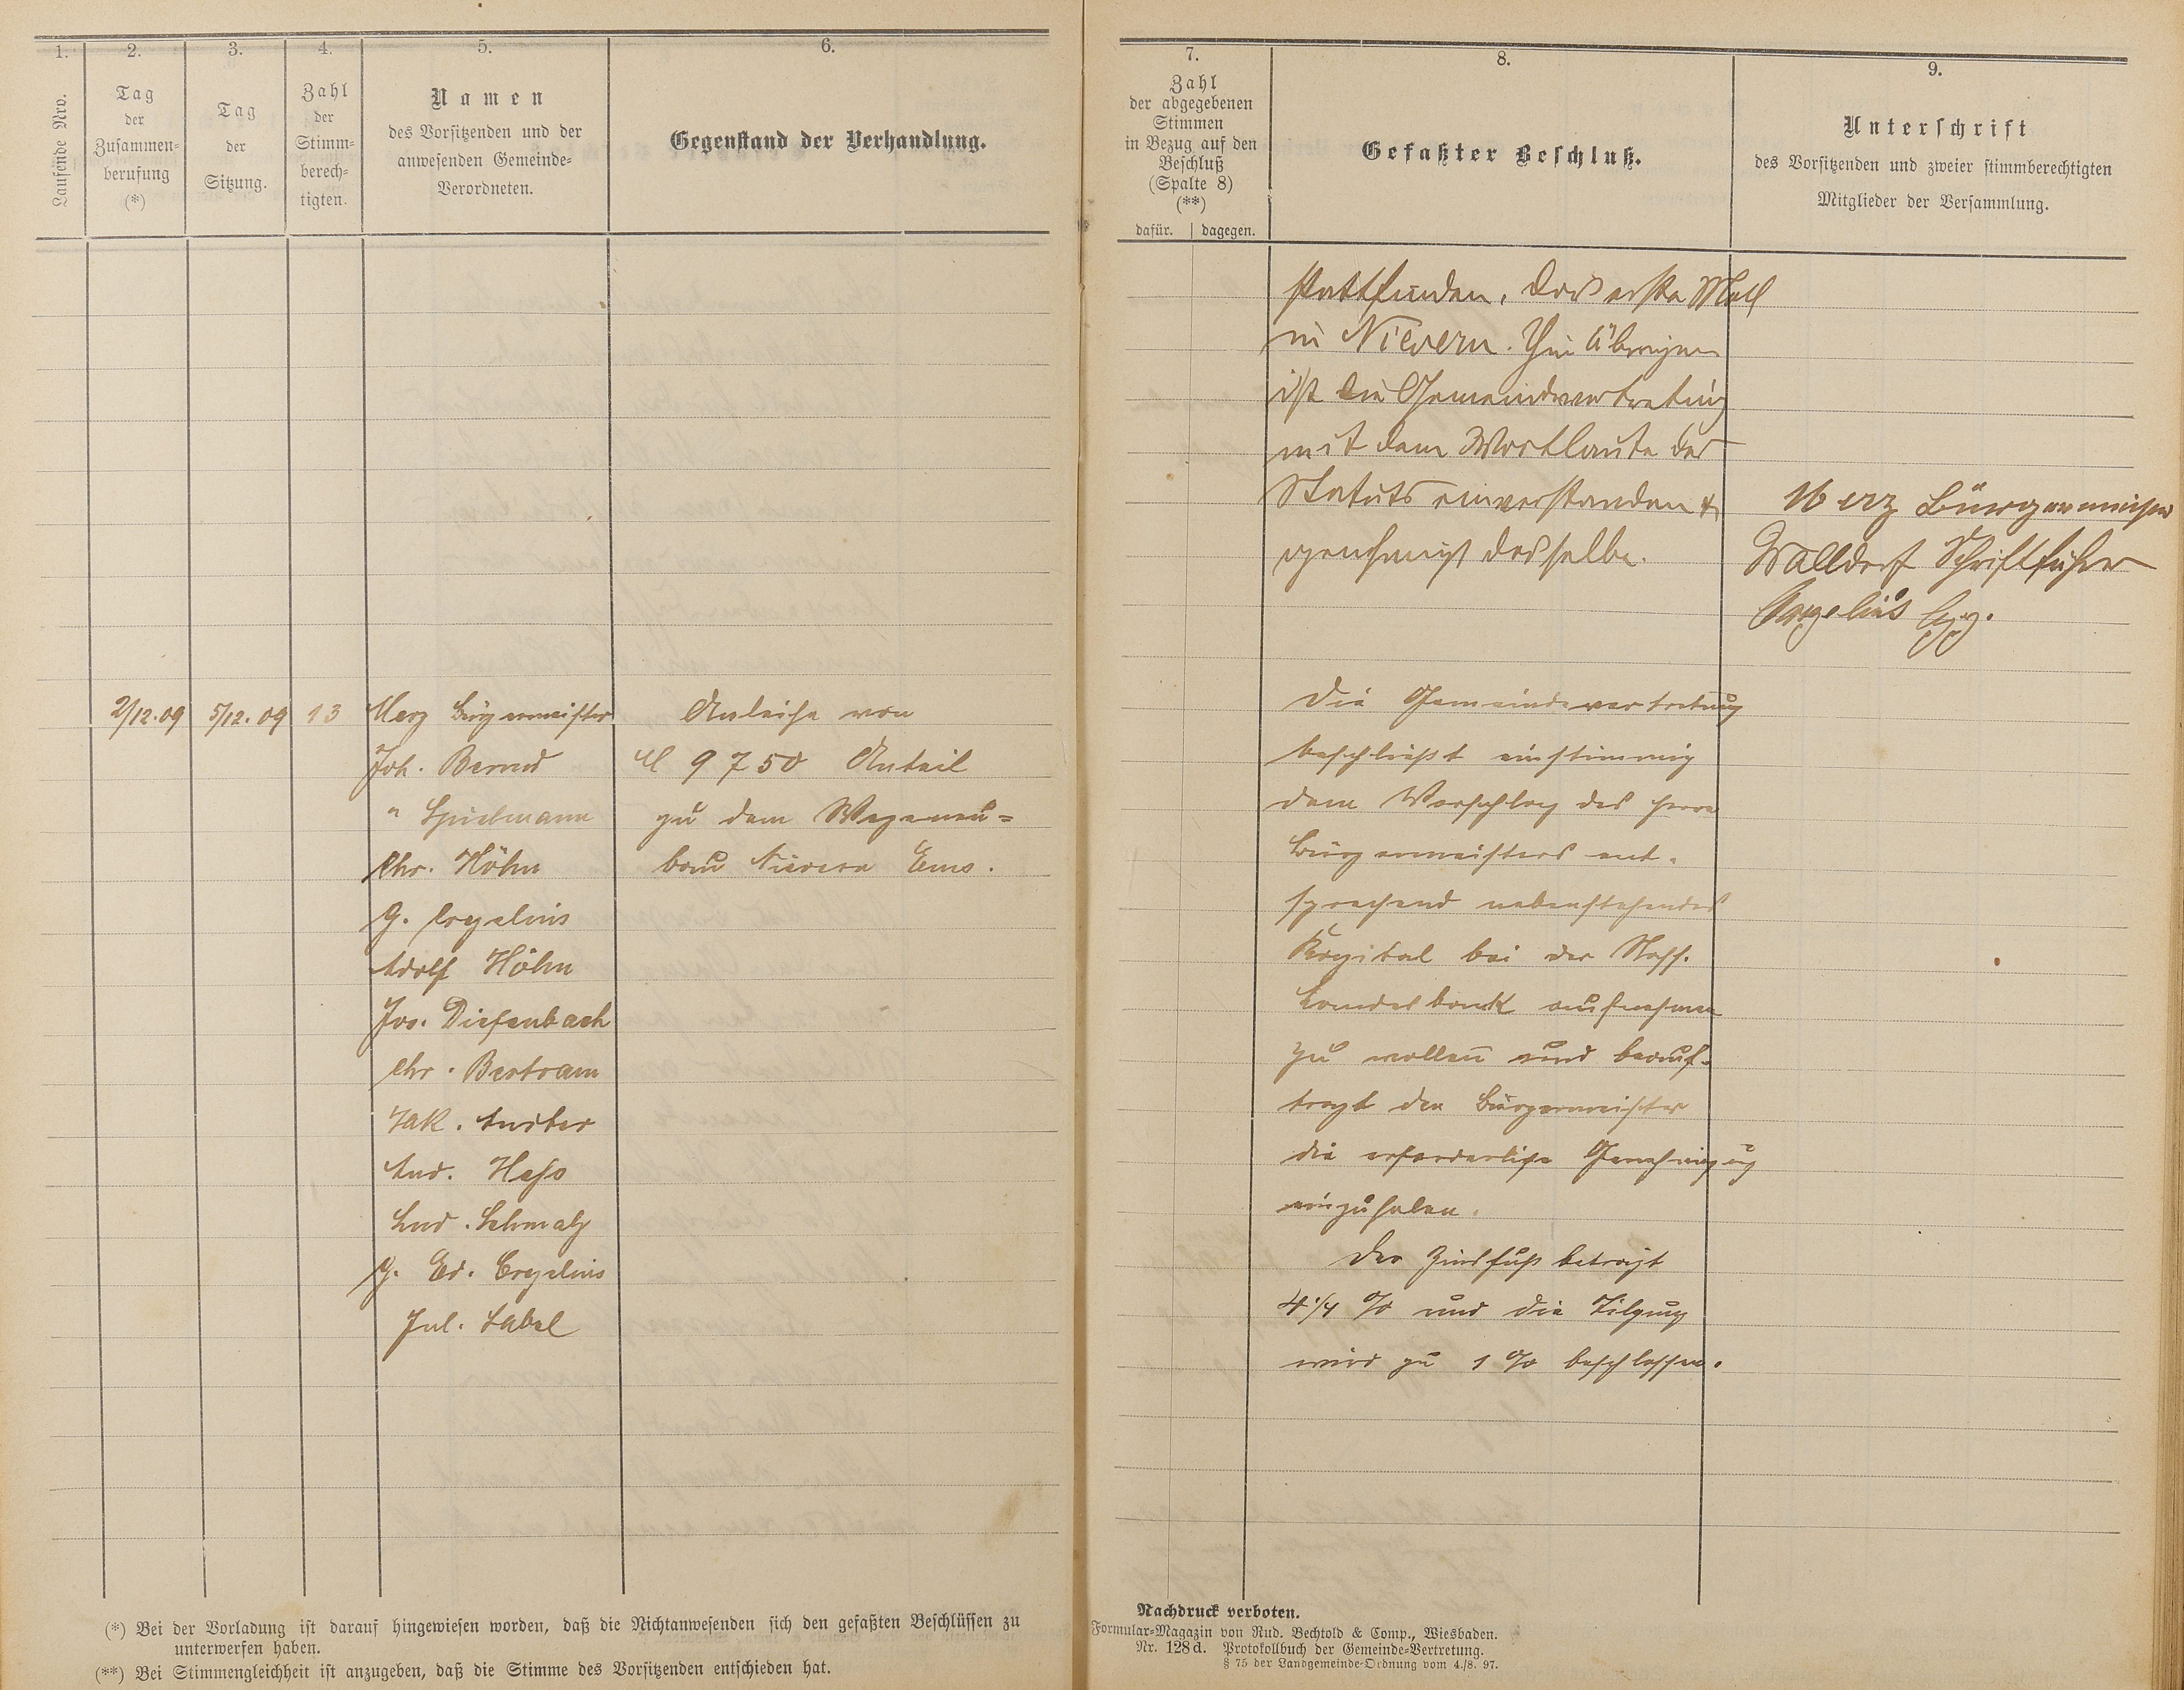 1.
Laufende Nro.
2.
Tag
der
Zusammen=
berufung
(*)
3.
Tag
der
Sitzung.
4.
Zahl
der
Stimm=
berech=
tigten.
5.
Namen
des Vorsitzenden und der
anwesenden Gemeinde=
Verordneten.
6.
Gegenstand der Verhandlung.
2/12.09 5/12.09 13 Merz Bürgermeister
Joh. Bernd
" Spielmann
Chr. Höhn
G. Corzelius
Adolf Höhn
Jos. Diefenbach
Chr. Bertram
Jak.
And. Heß
Lud. Schmalz
G. Ed. Corzelius
Jul. Label
Anleihe von
M 9750 Anteil
zu dem Wegeneu=
bau Nievern Ems.
(*) Bei der Vorladung ist darauf hingewiesen worden, daß die Nichtanwesenden sich den gefaßten Beschlüssen zu
unterwerfen haben.
(**) Bei Stimmengleichheit ist anzugeben, daß die Stimme des Vorsitzenden entschieden hat.
7.
Zahl
der abgegebenen
Stimmen
in Bezug auf den
Beschluß
(Spalte 8)
(**)
dafür. dagegen.
8.
Gefaßter Beschluß.
9.
Unterschrift
des Vorsitzenden und zweier stimmberechtigten
Mitglieder der Versammlung.
stattfinden, das erste Mal
in Nievern. Im Übrigen
ist die Gemeindevertretung
mit dem Wortlaute des
Statuts einverstanden &
genehmigt dasselbe.
Merz Bürgermeister
Walldorf Schriftführer
Corzelius
Die Gemeindevertretung
beschließt einstimmig
dem Vorschlag des Herrn
Bürgermeisters ent-
sprechend nebenstehendes
Kapital bei der Nass.
Landesbank aufnehmen
zu wollen und beauf-
tragt den Bürgermeister
die erforderliche Genehmigung
einzuholen.
Der Zinsfuß beträgt
4 1/4 % und die Tilgung
wird zu 1 % beschlossen.
Nachdruck verboten.
Formular=Magazin von Rud. Bechtold & Comp., Wiesbaden.
Nr. 128 d. Protokollbuch der Gemeinde=Vertretung.
§ 75 der Landgemeinde=Ordnung vom 4./8. 97.